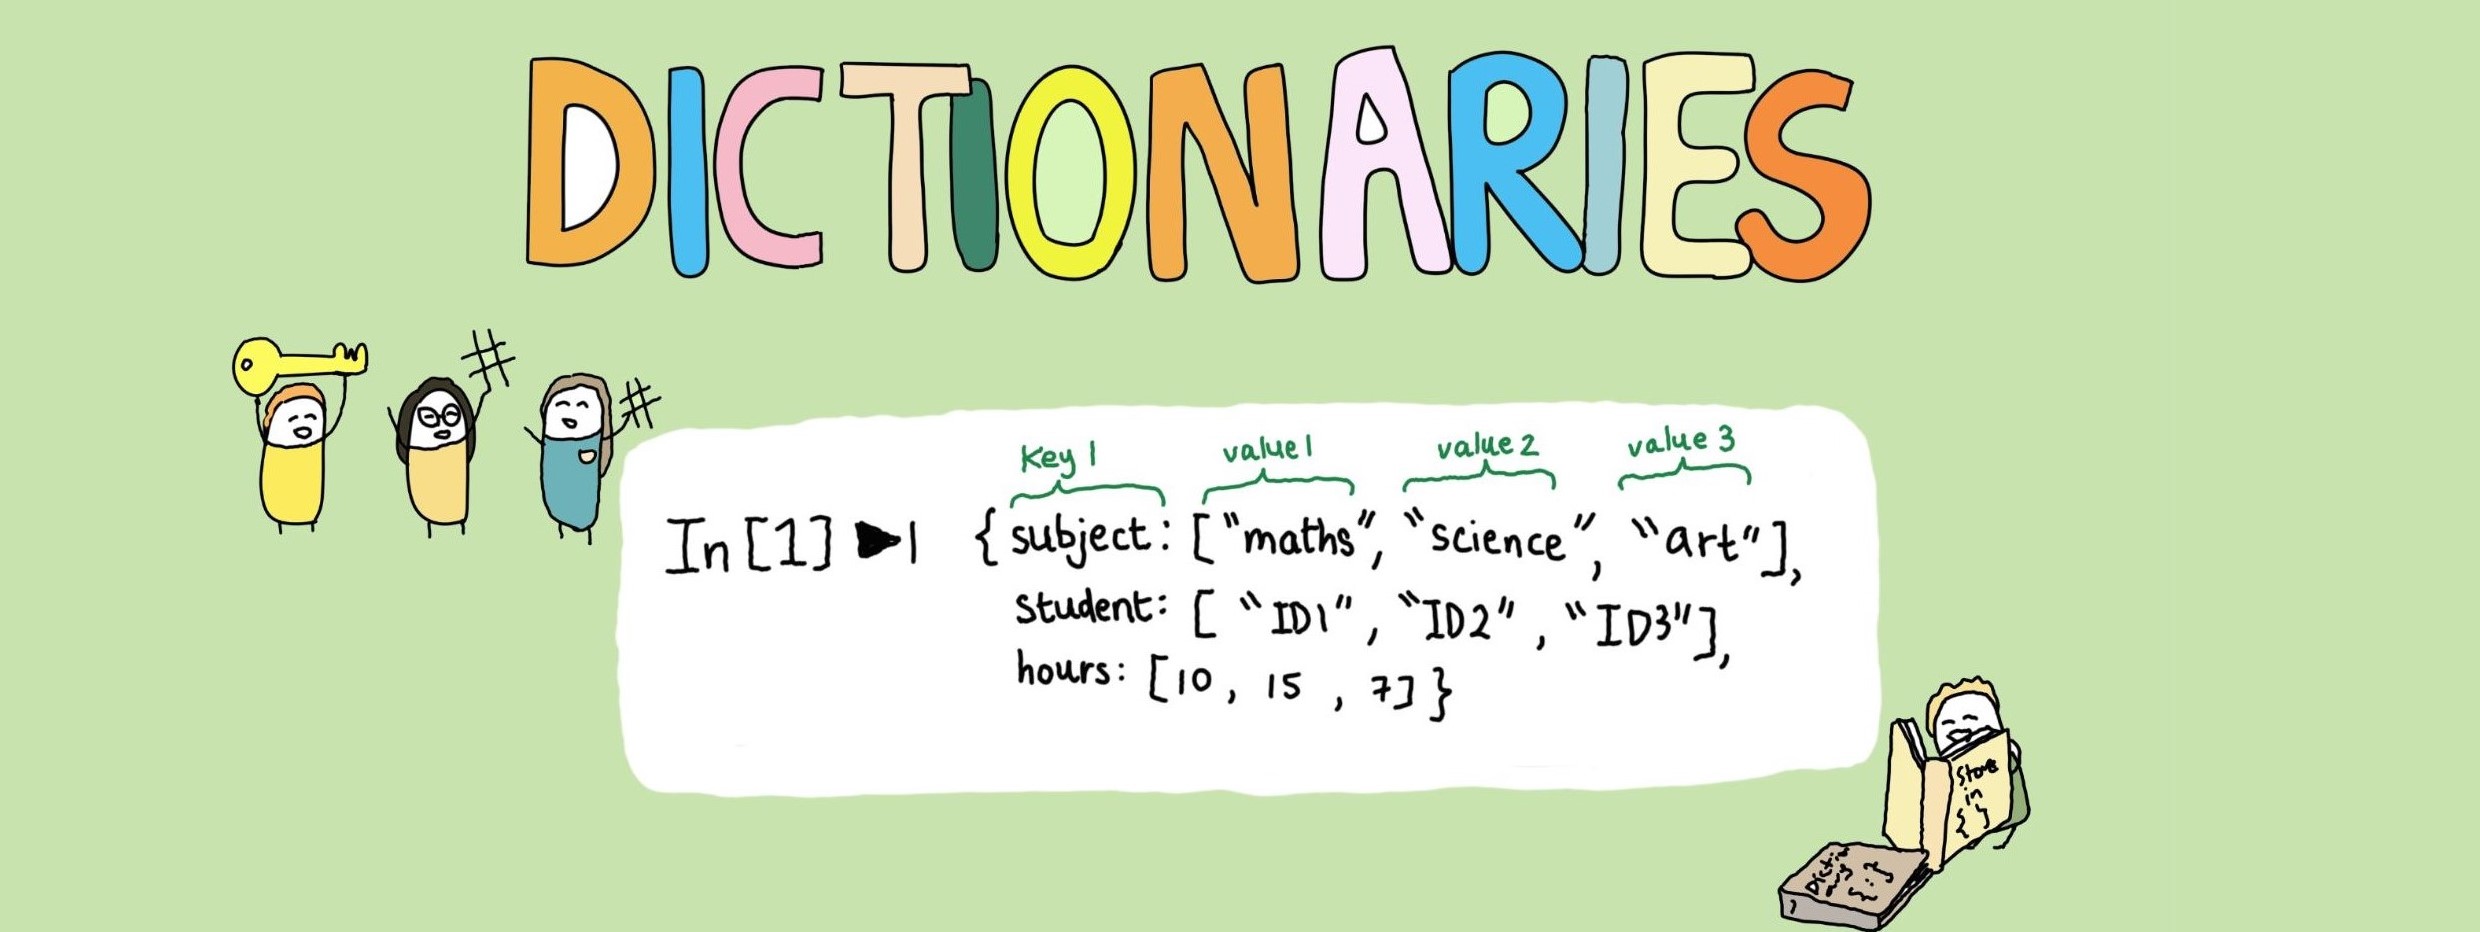 DICTIONARIES
#
#
Key 1 value1 value 2 value 3
In [1] ▶| { subject: ["maths", "science", "art"],
student: [ "ID1", "ID2", "ID3"],
hours: [10, 15, 7] }
in
{ }